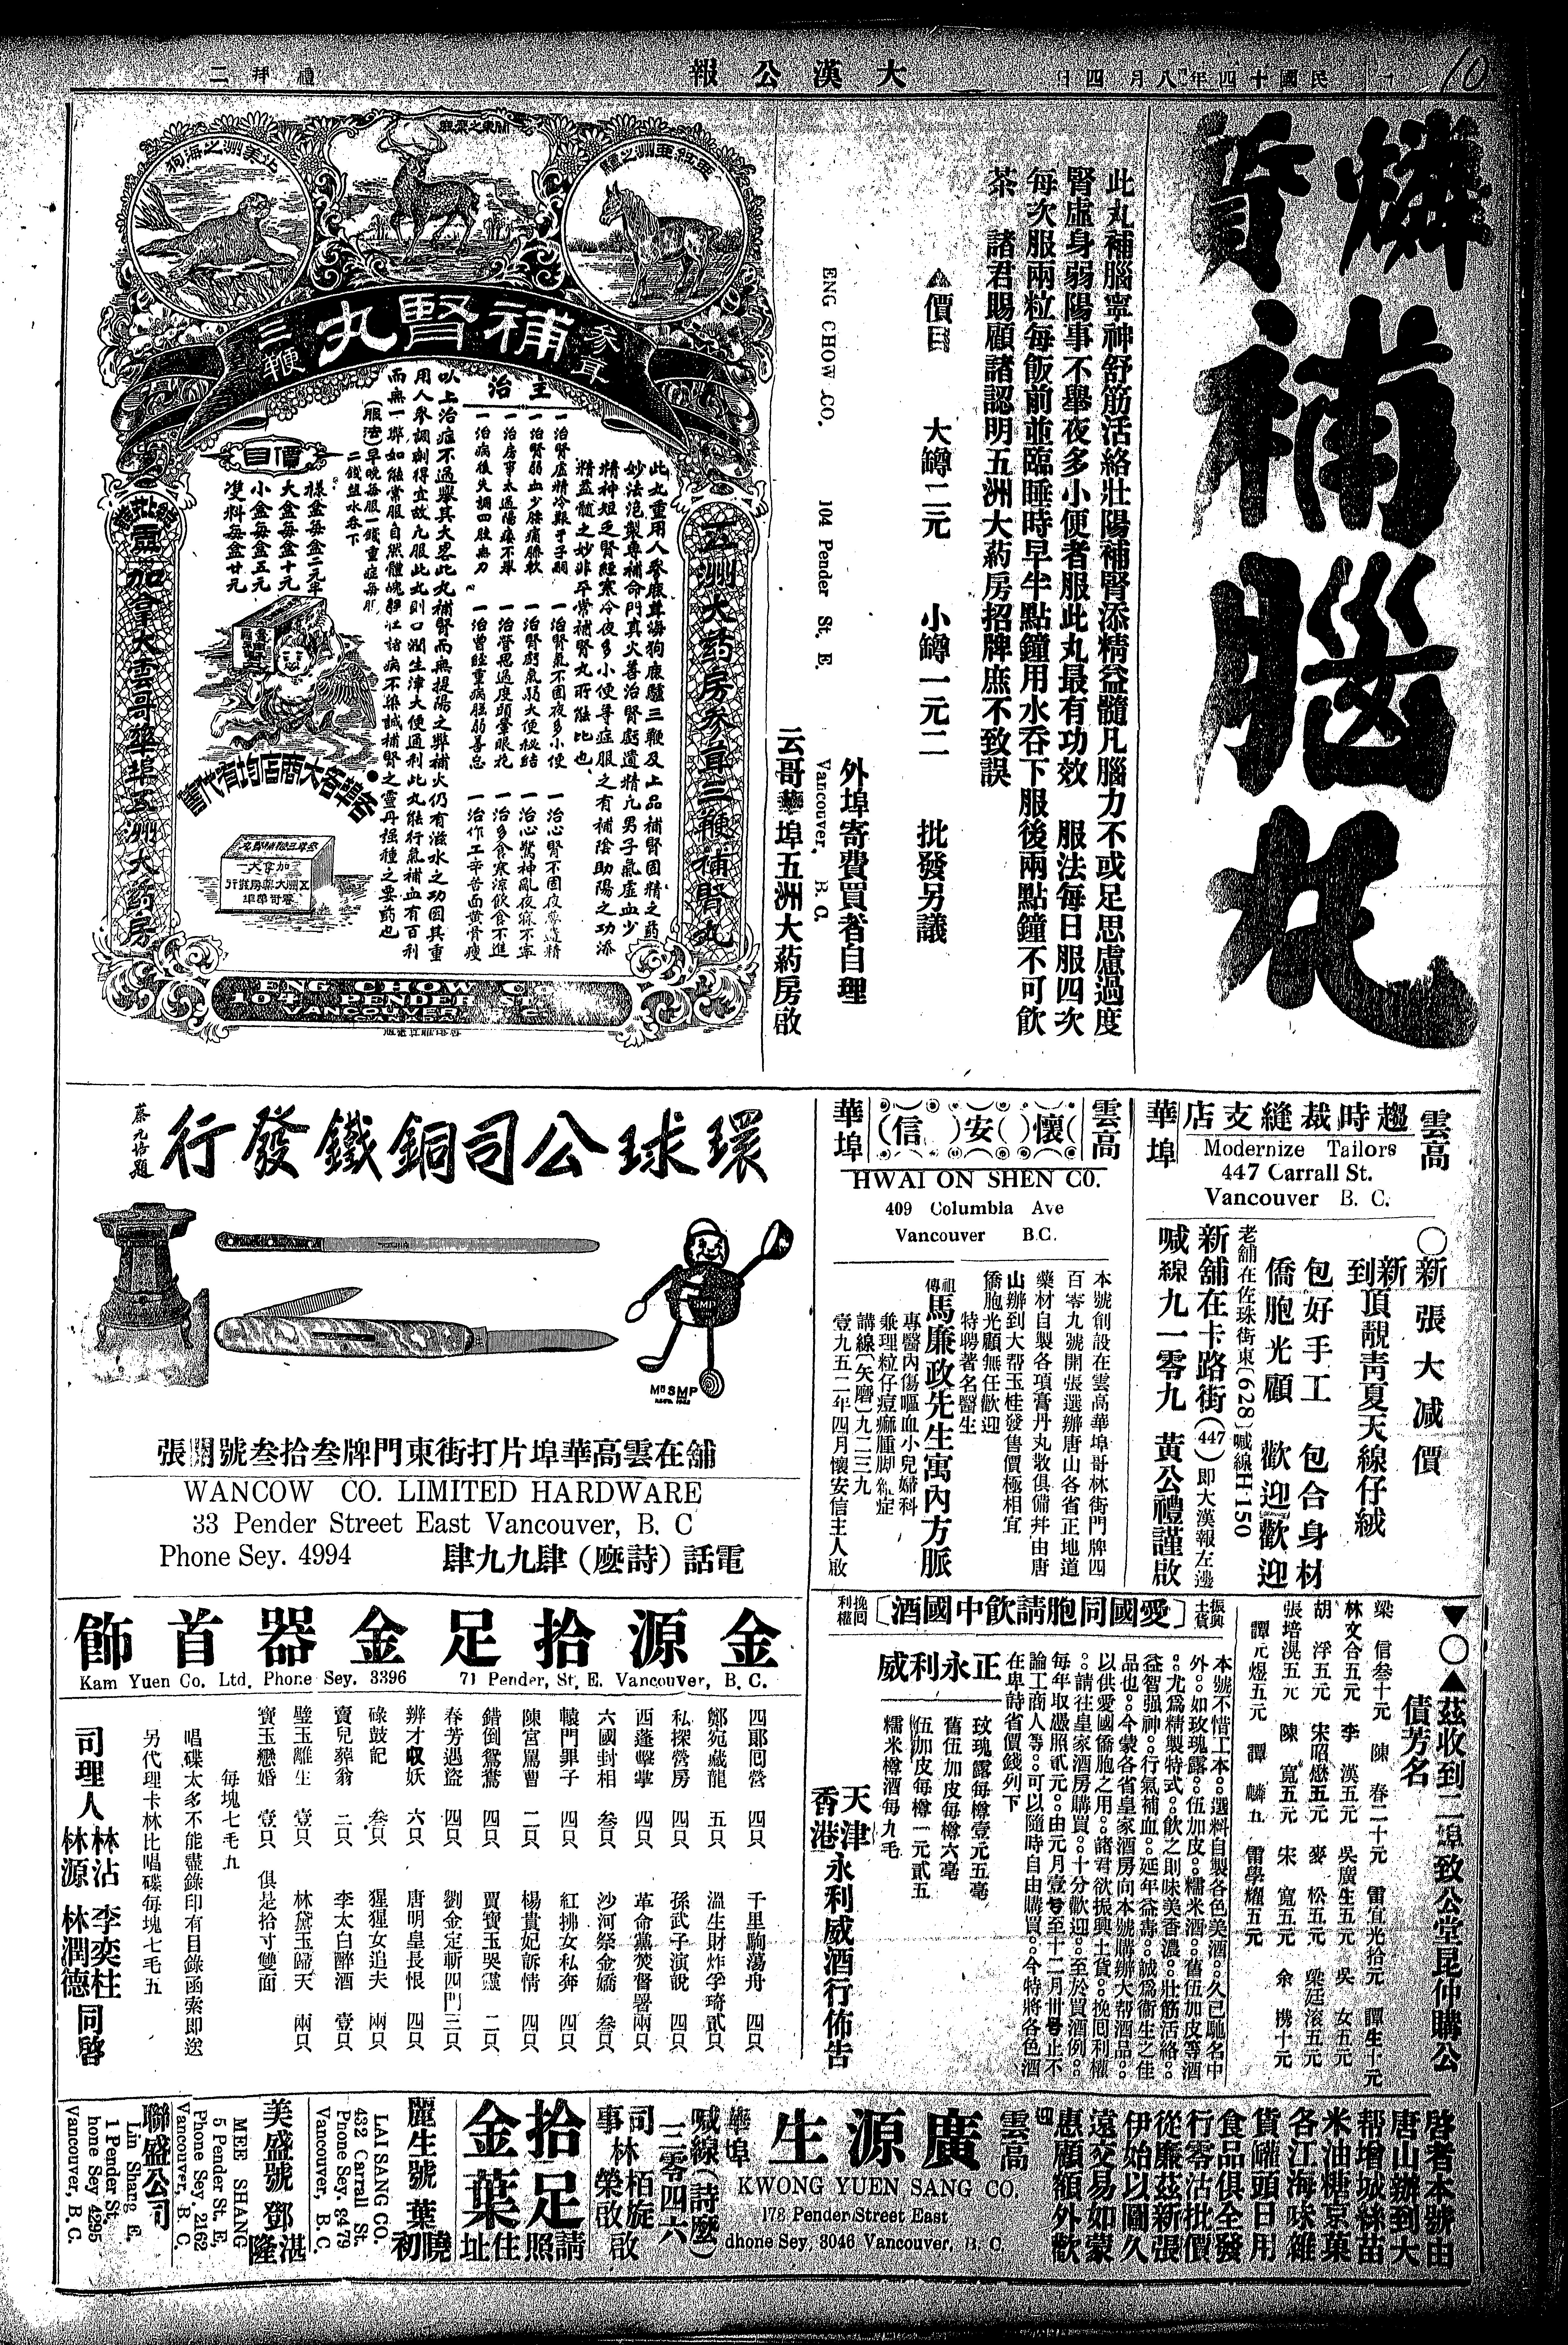 民國十四年八月四日
大漢公報
禮拜二
10
燐質補腦丸
此丸補腦寧神舒筋活絡壯陽補腎添精益髓凡腦力不或足思慮過度
腎虛身弱陽事不舉夜多小便者服此丸最有功效　服法每日服四次
每次服兩粒每飯前並臨睡時早半點鐘用水吞下服後兩點鐘不可飲
茶　諸君賜顧諸認明五洲大葯房招牌庶不致誤
▲價目　大罇二元　小罇一元二　批發另議
外埠寄費買者自理
ENG CHOW CO. 104 Pender St. E. Vancouver, B. C.
云哥華埠五洲大葯房啟
北美洲之海狗
參茸
補腎丸
三鞭
五洲大葯房參茸三鞭補腎丸
此丸重用人參鹿茸海狗鹿驢三鞭及上品補腎固精之葯
主治
一治腎虛精冷艱于子嗣
一治腎弱血少腰痛腳軟
一治房事太過陽痿不舉
一治病後失調四肢無力
一治腎氣不固夜多小便
一治腎虧氣弱大便秘結
一治營思過度頭暈眼花
一治曾經重病尪弱善忘
一治心腎不固夜夢遺精
一治心驚神亂夜寐不寧
一治多食寒涼飲食不進
一治作工辛苦面黄骨瘦
價目
樣盒每盒二元半
大盒每盒十元
小盒每盒五元
雙料每盒廿元
各埠各大商店均有代售
加拿大雲哥華埠五洲大葯房
ENG CHOW CO
104 PENDER ST
VANCOUVER B. C.
雲高華埠
趨時裁縫支店
Modernize Tailors
447 Carrall St.
Vancouver B. C.
○新張大减價
新到頂靚青夏天線仔絨
包好手工　包合身材
僑胞光顧　歡迎歡迎
老舖在佐珠街東(628)喊線H-150
新舖在卡路街(447)即大漢報左邊
喊線九一零九　黃公禮謹啟
雲高華埠
(懷)(安)(信)
HWAI ON SHEN CO.
409 Columbia Ave
Vancouver B.C.
本號創設在雲高華埠哥林街門牌四
百零九號開張選辦唐山各省正地道
藥材自製各項膏丹丸散俱備幷由唐
山辦到大帮玉桂發售價極相宜
僑胞光顧無任歡迎
特聘著名醫生
祖傳馬廉政先生寓內方脈
專醫內傷嘔血小兒婦科
兼理粒仔痘癩腫脚雜症
講線(矢磨)九二三九
壹九五二年四月懷安信主人啟
環球公司銅鐵發行
MR SMP
舖在雲高華埠片打街東門牌叁拾叁號開張
WANCOW CO. LIMITED HARDWARE
33 Pender Street East Vancouver, B. C
Phone Sey. 4994
電話(詩麼)肆九九肆
▼○▲茲收到二埠致公堂昆仲購公
債芳名
梁　信叁十元　陳　春二十元　雷宜光拾元　譚生十元
林文合五元　李　漢五元　吳廣生五元　吳　女五元
胡　浮五元　宋昭懋五元　麥　松五元　梁廷滚五元
張培滉五元　陳　寬五元　宋　寬五元　余　機十元
譚元煜五元　譚　麟五　雷學耀五元
振興土貨
〔愛國同胞請飲中國酒〕
挽回利權
本號不惜工本。選料自製各色美酒。久已馳名中
外。如玫瑰露。伍加皮。糯米酒。舊伍加皮等酒
。尤爲精製特式。飲之則味美香濃。壯筋活絡。
益智强神。行氣補血。延年益壽。誠爲衞生之佳
品也。今蒙各省皇家酒房向本號購辦大帮酒品。
以供愛國僑胞之用。諸君欲振興土貨。挽囘利權
。請往皇家酒房購買。十分歡迎。至於買酒例。
每年取慿照貳元。由元月壹号至十二月卅号止不
論工商人等。可以隨時自由購買。今特將各色酒
在卑詩省價錢列下
正永利威
玫瑰露每樽壹元五毫
舊伍加皮每樽六毫
伍加皮每樽一元貳五
糯米樽酒每九毛
天津香港永利威酒行佈告
金源拾足金器首飾
Kam Yuen Co. Ltd. Phone Sey. 3396 71 Pender, St, E. Vancouver, B. C.
四郎囘營　四只　千里駒蕩舟　四只
鄭宛藏龍　五只　溫生財炸孚琦貳只
私探營房　四只　孫武子演說　四只
西蓬擊掌　四只　革命黨焚督署兩只
六國封相　叁只　沙河祭金嬌　叁只
轅門罪子　四只　紅拂女私奔　四只
陳宮罵曹　二只　楊貴妃訴情　四只
錯倒鴛鴦　四只　賈寶玉哭靈　二只
春芳遇盜　四只　劉金定斬四門三只
辨才収妖　六只　唐明皇長恨　四只
碌鼓記　叁只　猩猩女追夫　兩只
賣兒葬翁　二只　李太白醉酒　壹只
璧玉離生　壹只　林黛玉歸天　兩只
寶玉戀婚　壹只　俱是拾寸雙面
每塊七毛九
唱碟太多不能盡錄印有目錄函索即送
另代理卡林比唱碟每塊七毛五
司理人　林沾　李奕柱　林源　林潤德　同啓
啓者本號由
唐山辦到大
帮增城絲苗
米油糖京菓
各江海味雜
貨罐頭日用
食品俱全發
行零沽批價
從廉茲新張
伊始以圖久
遠交易如蒙
惠顧額外歡
迎
雲高華埠
廣源生
KWONG YUEN SANG CO.
178 Pender Street East
dhone Sey. 3046 Vancouver, B. C.
喊線(詩麼)三零四六
司事林栢旋榮啟
拾足金葉
請照住址
麗生號　葉曉初
LAI SANG CO.
432 Carrall St.
Phone Sey. 8479
Vancouver, B. C.
美盛號　鄧湛隆
MEE SHANG
5 Pender St. E,
Phone Sey 2162
Vancouver, B. C.
聯盛公司
Lin Shang E.
1 Pender St.
hone Sey 4295
Vancouver, B. C.